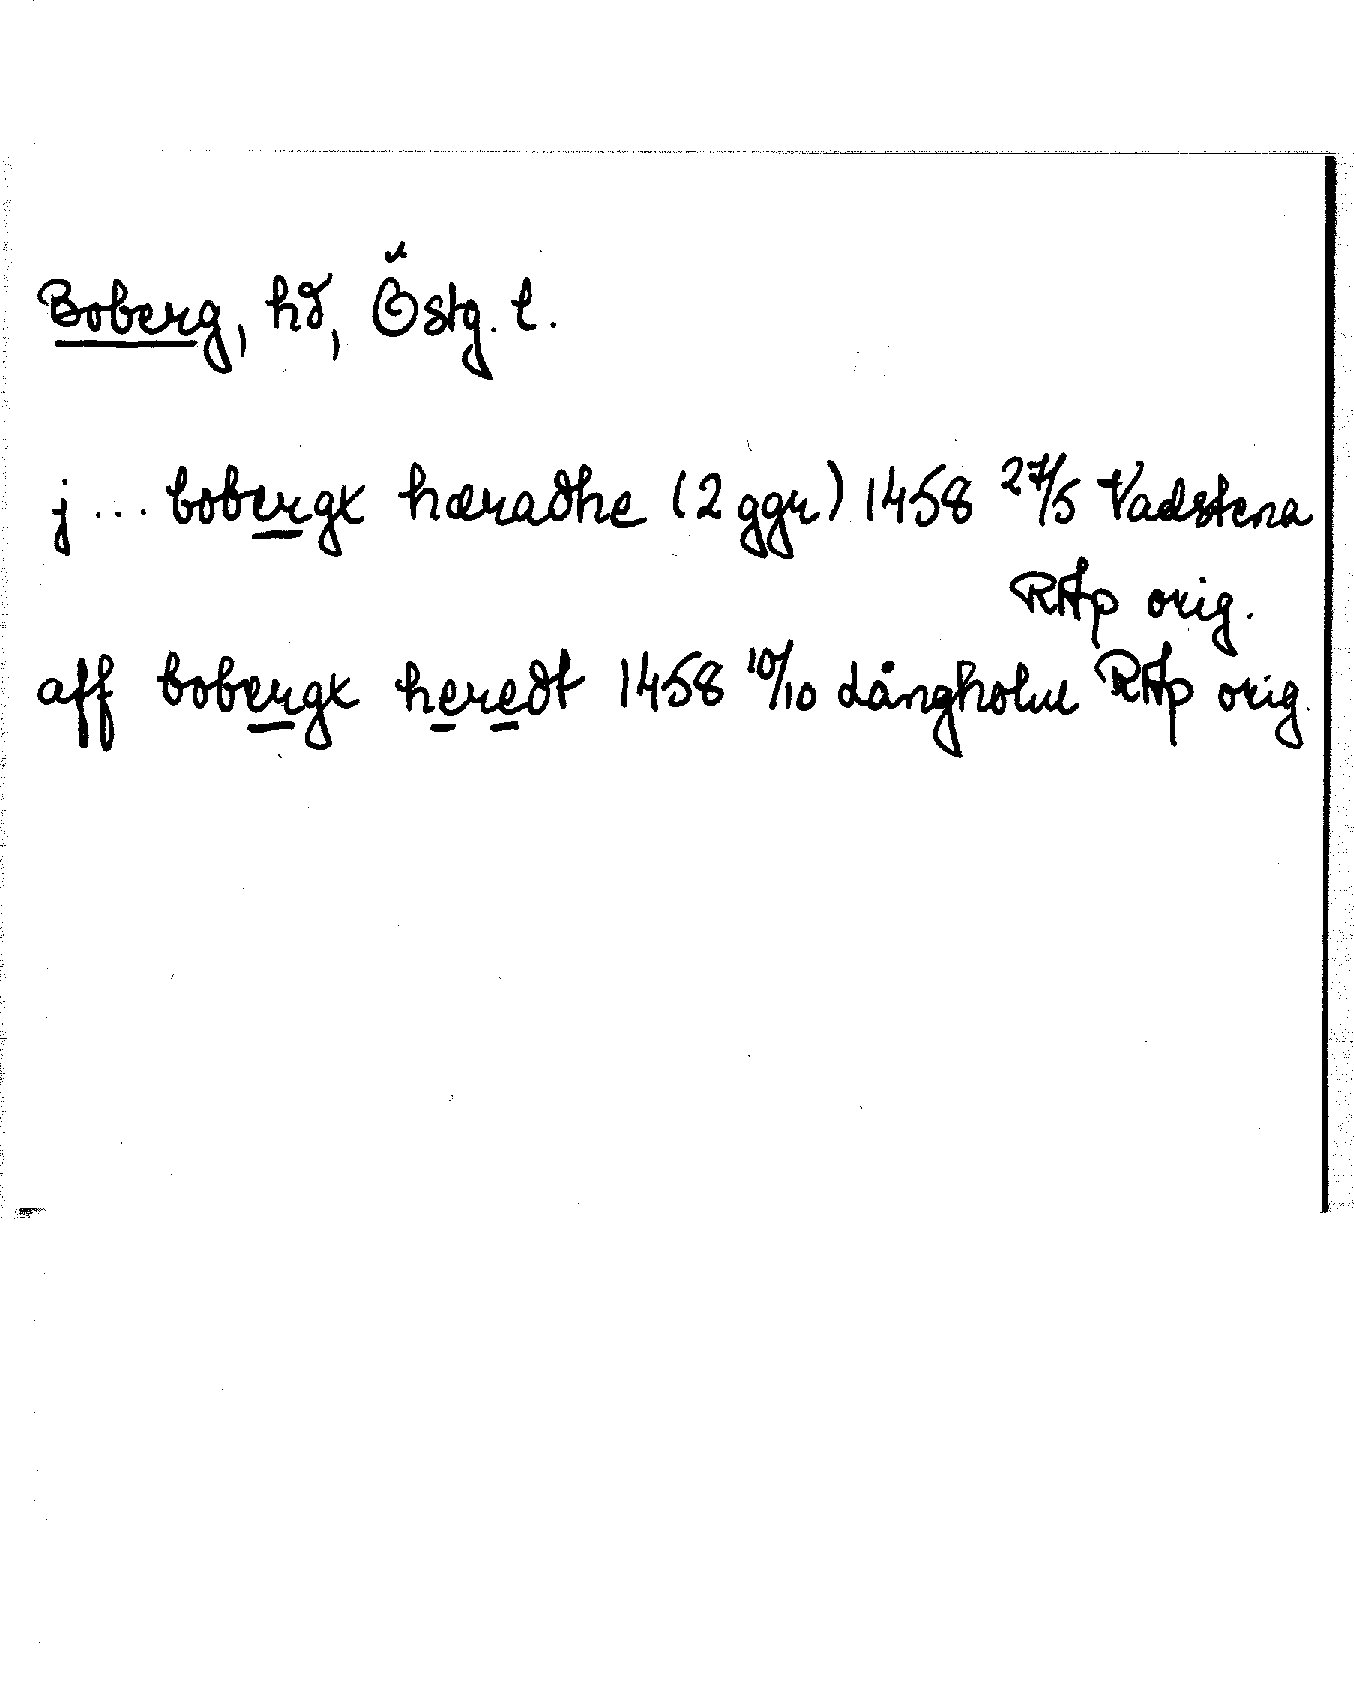 Boberg, hd, Östg. l.
j ... bobergx hæradhe (2 ggr) 1458 27/5 Vadstena
RAp orig.
aff bobergx heredt 1458 10/10 Långholm RAp orig.